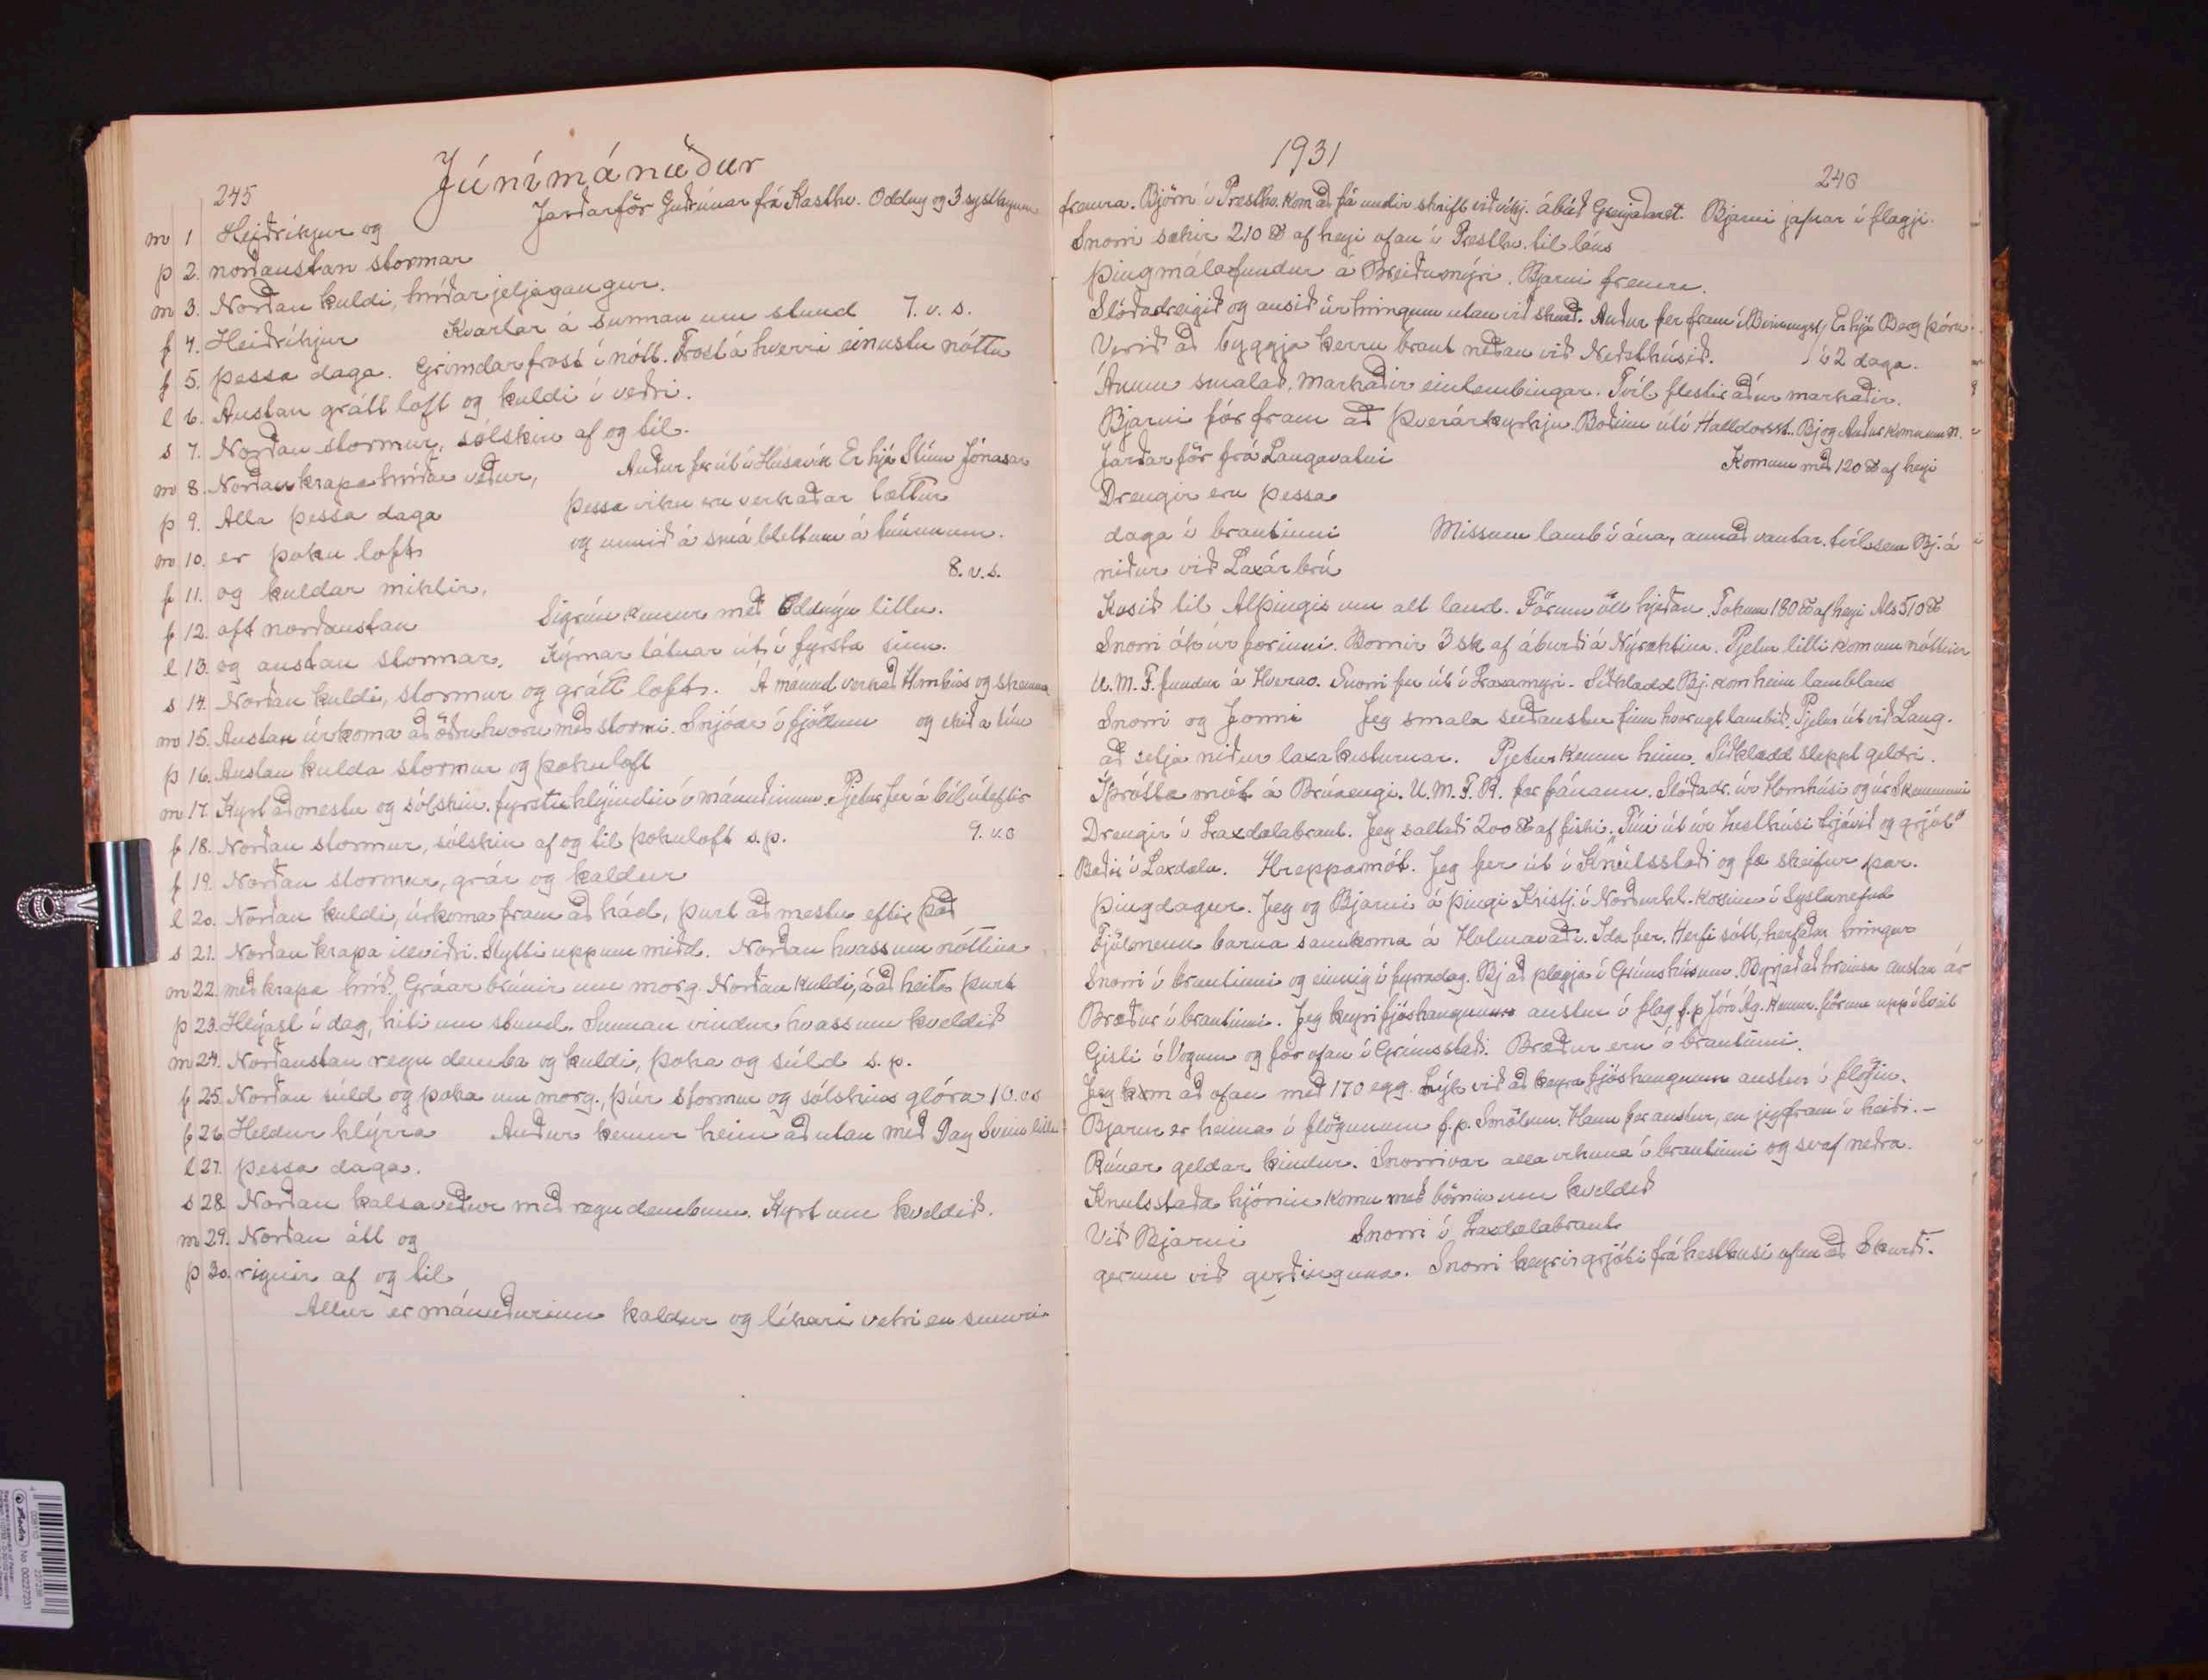 245
Júnímánuður
m 1 Heiðríkjur og Jarðarför Guðrúnar frá Kasthv. Oddny og 3 systkynin
þ 2. norðaustan stormar
m 3. Norðan kuldi, hríðar jeljagangur.
f 4. Heiðríkjur Kvartar á sunnan um stund 7. v. s.
f 5. þessa daga. Grimdar frost í nótt. Frost á hverri einustu nóttu
l 6. Austan grátt loft og kuldi í veðri.
s 7. Norðan stormur, sólskin af og til.
m 8. Norðan krapahríðar veður, Auður fer út í Húsavík Er hjá Stínu Jónasar
þ 9. Alla þessa daga þessa viku eru verkaðar tættur
m 10. er þoku loft og unnið á smá blettum á túninum.
f 11. og kuldar miklir, 8. v. s.
f 12. oft norðaustan Sigrún kemur með Oddnýu litlu.
l 13. og austan stormar, Kýrnar látnar út í fyrsta sinn.
s 14. Norðan kuldi, stormur og grátt loft. Á mánud verkað Hrnhús og skemma
m 15. Austan úrkoma að öðru hvoru með stormi. Snjóar í fjöllum og ekið a tún
þ 16. Austan kulda stormur og þokuloft
m 17. Kyrt að mestu og sólskin. fyrstu hlýindin í mánuðinum. Pjetur fer á bíl úteftir
f 18. Norðan stormur, sólskin af og til þokuloft s. p. 9. v. s
f 19. Norðan stormur, grár og kaldur
l 20. Norðan kuldi, úrkoma fram að hád, þurt að mestu eftir það
s 21. Norðan krapa illviðri. Stytti upp um midd. Norðan hvass um nóttina
m 22. með krapa hríð. Gráar brúnir um morg. Norðan kuldi, á að heita þurt
þ 23. Hlýast í dag, hiti um stund. Sunnan vindur hvass um kveldið
m 24. Norðaustan regn demba og kuldi, þoka og súld s. p.
f 25. Norðan súld og þoka um morg., þur stormur og sólskins glóra 10. v s
f 26. Heldur hlýrra Auður kemur heim að utan með Dag Svein litla
l 27. þessa daga.
s 28. Norðan kalsaveður með regndembum. Kyrt um kveldið.
m 29. Norðan átt og
þ 30. rignir af og til
Allur er mánuðurinn kaldur og líkari vetri en sumri
1931
246
fremra. Björn í Presthv. kom að fá undir skrift við víkj. ábúð Grenjaðarst. Bjarni jafnar í flagji.
Snorri sækir 210 ℔ af heyi ofan í Presthv. til láns
þingmálafundur á Breiðumýri. Bjarni fremra.
Slóðadreigið og ausið úr hringum utan við skurð. Auður fer fram í Er hjá Bergþóru
Verið að byggja kerru braut neðan við Neðsthúsið. í 2 daga.
Ánum smalað, markaðir einlembingar. Tvíl. flestir áður markaðir.
Bjarni fór fram að Þverárkyrkju. Boðinn út í Halldorsst. Bj og Auður komu um n.
Jarðarför frá Laugavatni Komum með 120 ℔ af heyi
Drengir eru þessa
daga í brautinni Missum lamb í ána, annað vantar. tvílsem Bj. á
niður við Laxárbrú
Kosið til Alþingis um alt land. Förum öll hjeðan. Tokum 180 ℔ af heyi Als 510 ℔
Snorri ók úr forinni. Bornir 3 sk af áburði á Nýræktina. Pjetur litli kom um nóttina
U. M. F. fundur á Hverav. Snorri fer út í Laxamyri. Síðkladd Bj. kom heim lamblaus
Snorri og Jonni Jeg smala suðaustur finn hvorugt lambið. Pjetur út við Laug.
að setja niður laxakisturnar. Pjetur kemur heim. Síðklædd sleppt geldri.
Íþrótta mót á Brúaengi. U. M. F. R. fer fánann. Slóðadr. úr Hornhúsi og úr Skemmunni
Drengir í Laxdælabraut. Jeg saltaði 200 ℔ af fiski. Tíni út úr hesthúsi trjávið og grjót
Baðir í Laxdælu. Hreppamót. Jeg fer út í Knútsstaði og fæ skeifur þar.
þingdagur. Jeg og Bjarni á þingi Kristj. í Norðurhl. kosinn í Syslunefnd
Fjölmenn barna samkoma á Holmavaði. Ida fer. Herfi sótt, herfaðar hringur
Snorri í brautinni og einnig í fyrradag. Bj að plægja í Grímshúsum. Byrjað að hreinsa austan ár
Bræður í brautinni. Jeg keyri fjóshaugnum austur í flag f. p Jóró kemur. förum upp í Sveit
Gisti í Vogum og fór ofan í Grímsstaði. Bræður eru í brautinni.
Jeg kom að ofan með 170 egg. Lýk við að keyra fjóshaugnum austur í flögin.
Bjarni er heima í flögunum f. p. Smölum. Hann fer austur, en jeg fram í heiði.-
Rúnar geldar kindur. Snorri var alla vikuna í brautinni og svaf neðra.
Knutsstaða hjónin komu með börnin um kveldið
Við Bjarni Snorri í Laxdælabraut
gerum við girðinguna. Snorri keyrir grjóti frá hesthusi ofan að Skurði.